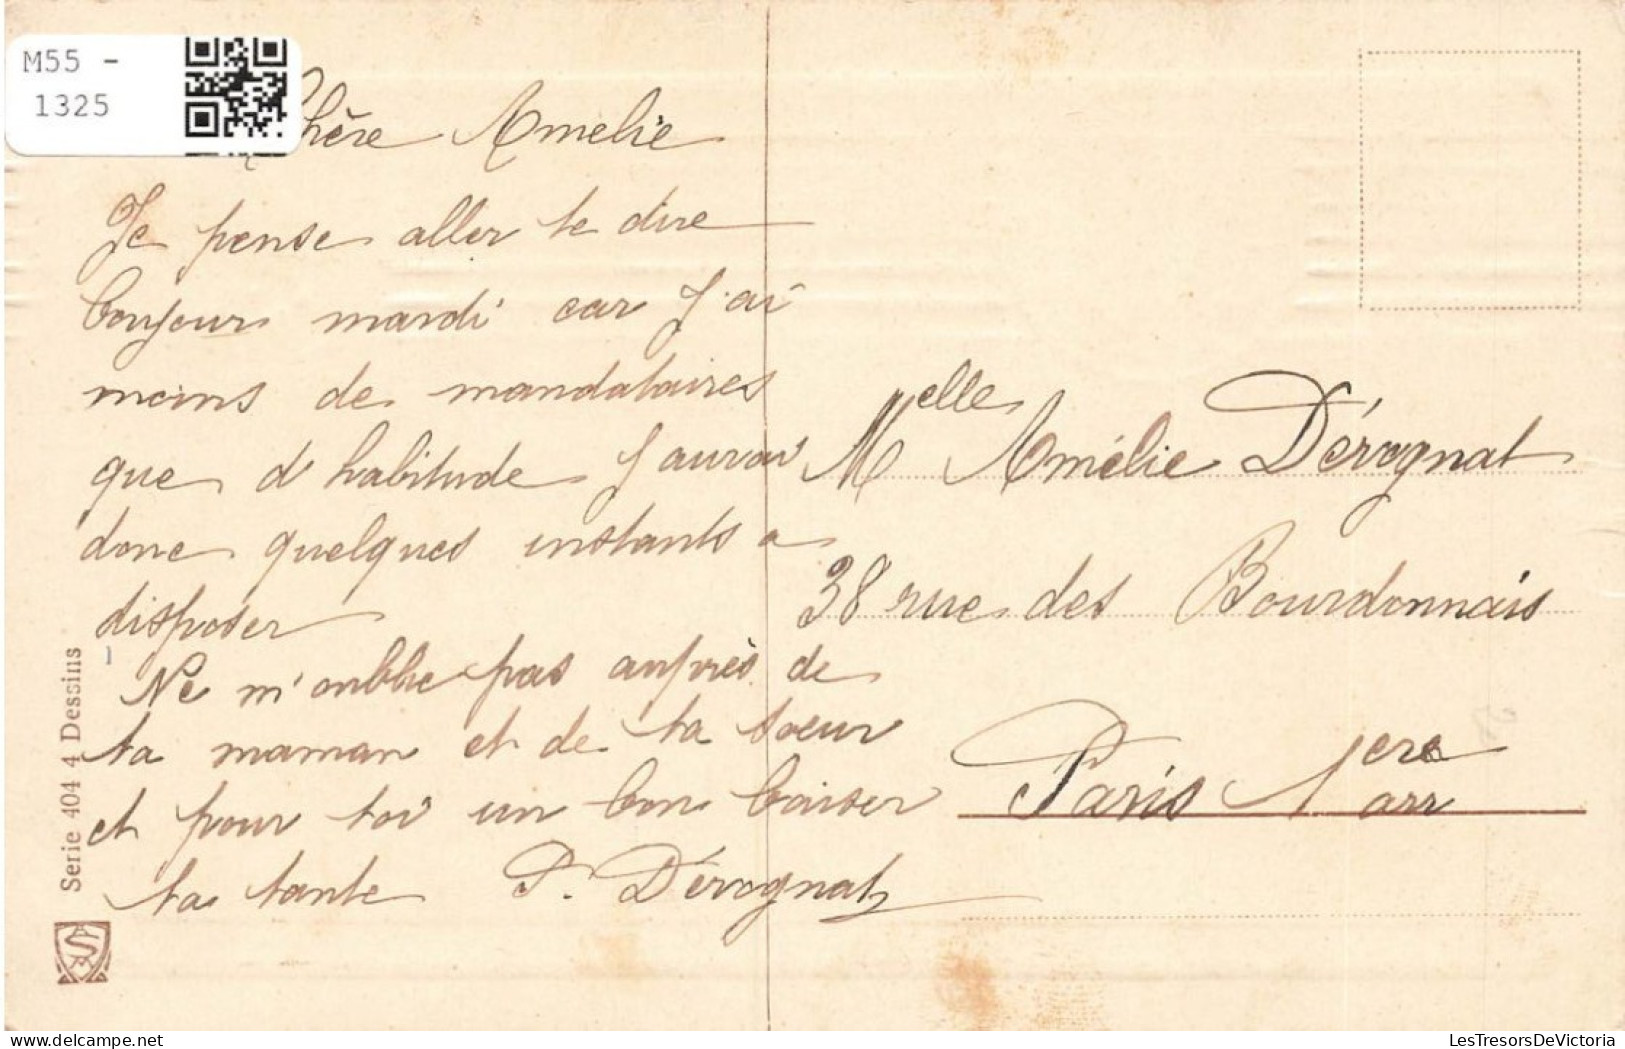 M55 -
1325
Chère Amelie
Je pense aller te dire
bonjour mardi car j'ai
moins de mandataires
que d'habitude j'aurai
donc quelques instants a
disposer
Ne m'oublie pas auprès de
ta maman et de ta soeur
et pour toi un bon baiser
ta tante P. Dérognat
Melle Amélie Dérognat
38 rue des Bourdonnais
Paris 1ere arr
Serie 404 4 Dessins
delcampe.net
LesTresorsDeVictoria